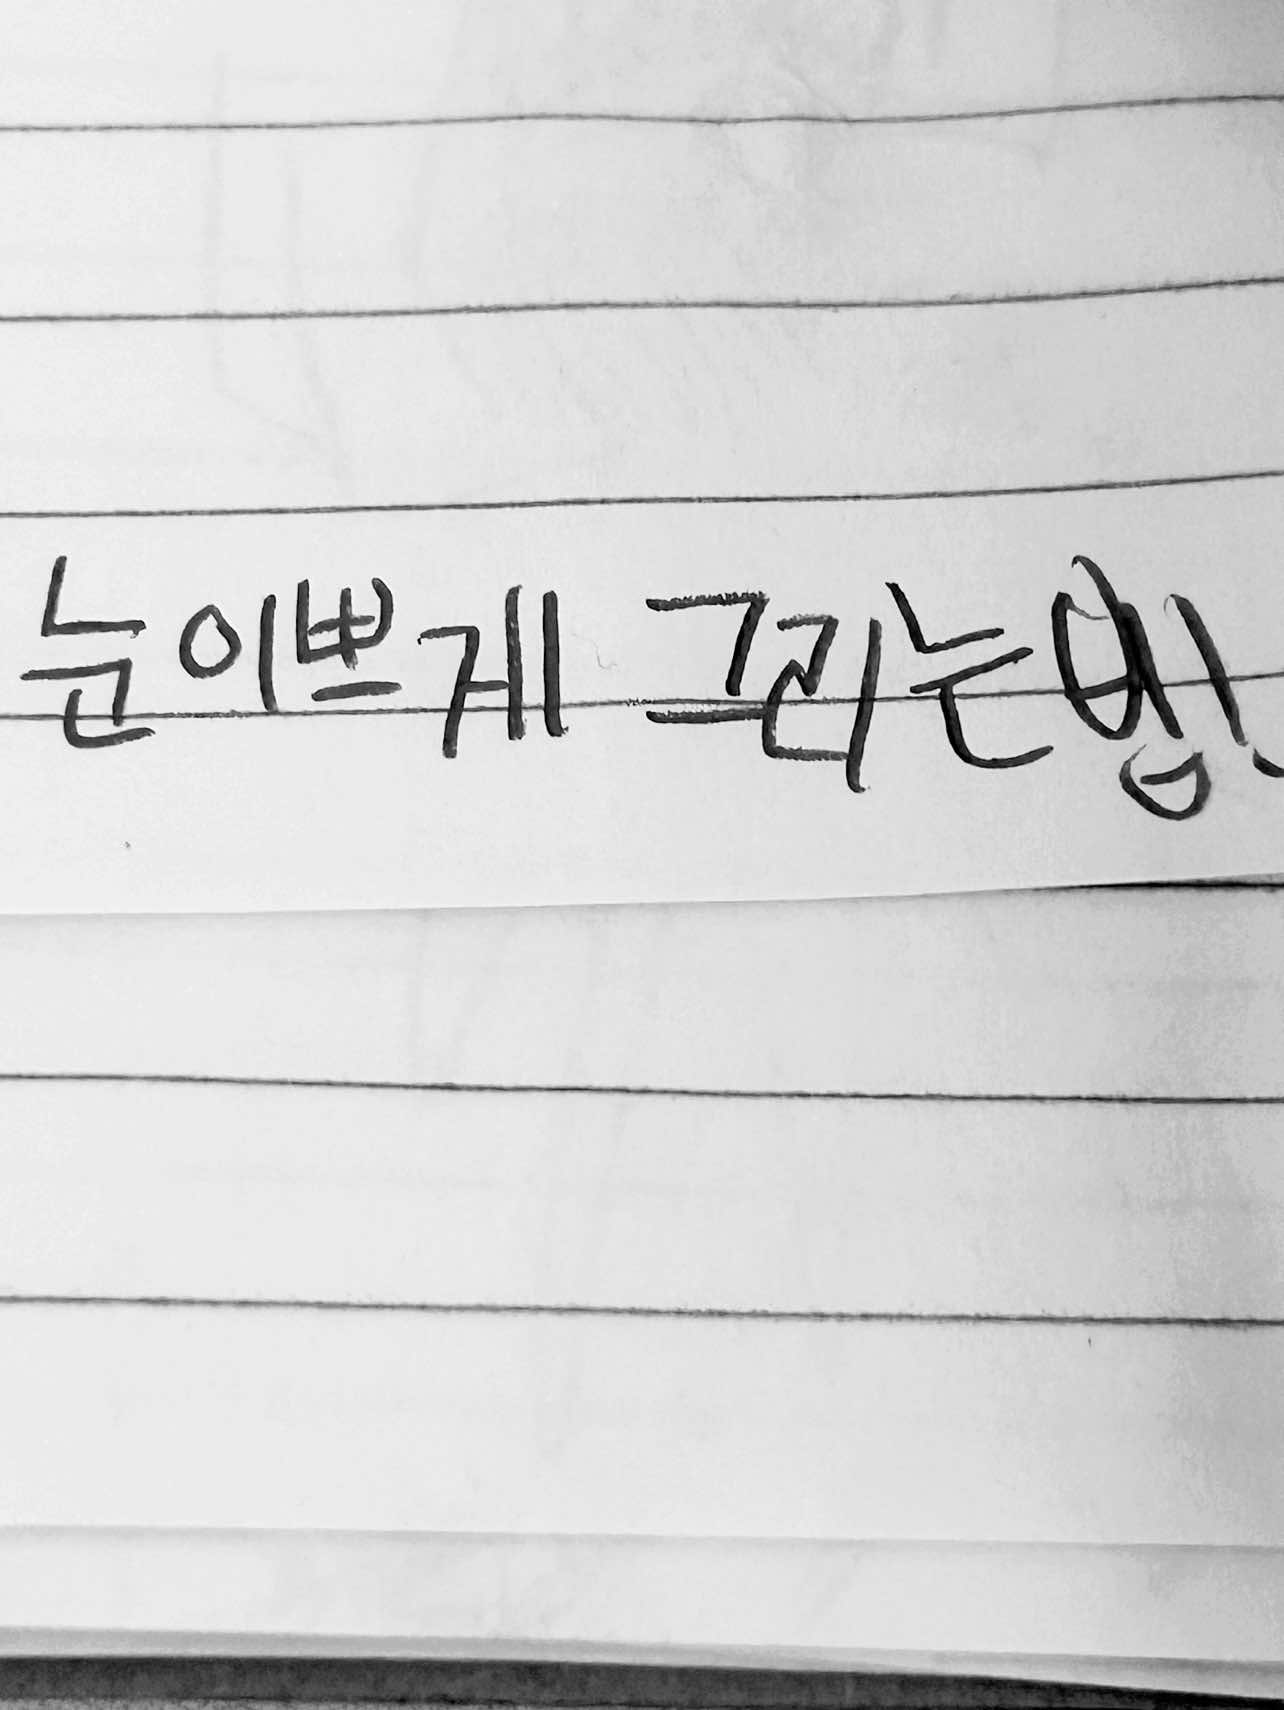 눈이쁘게 그리는법.